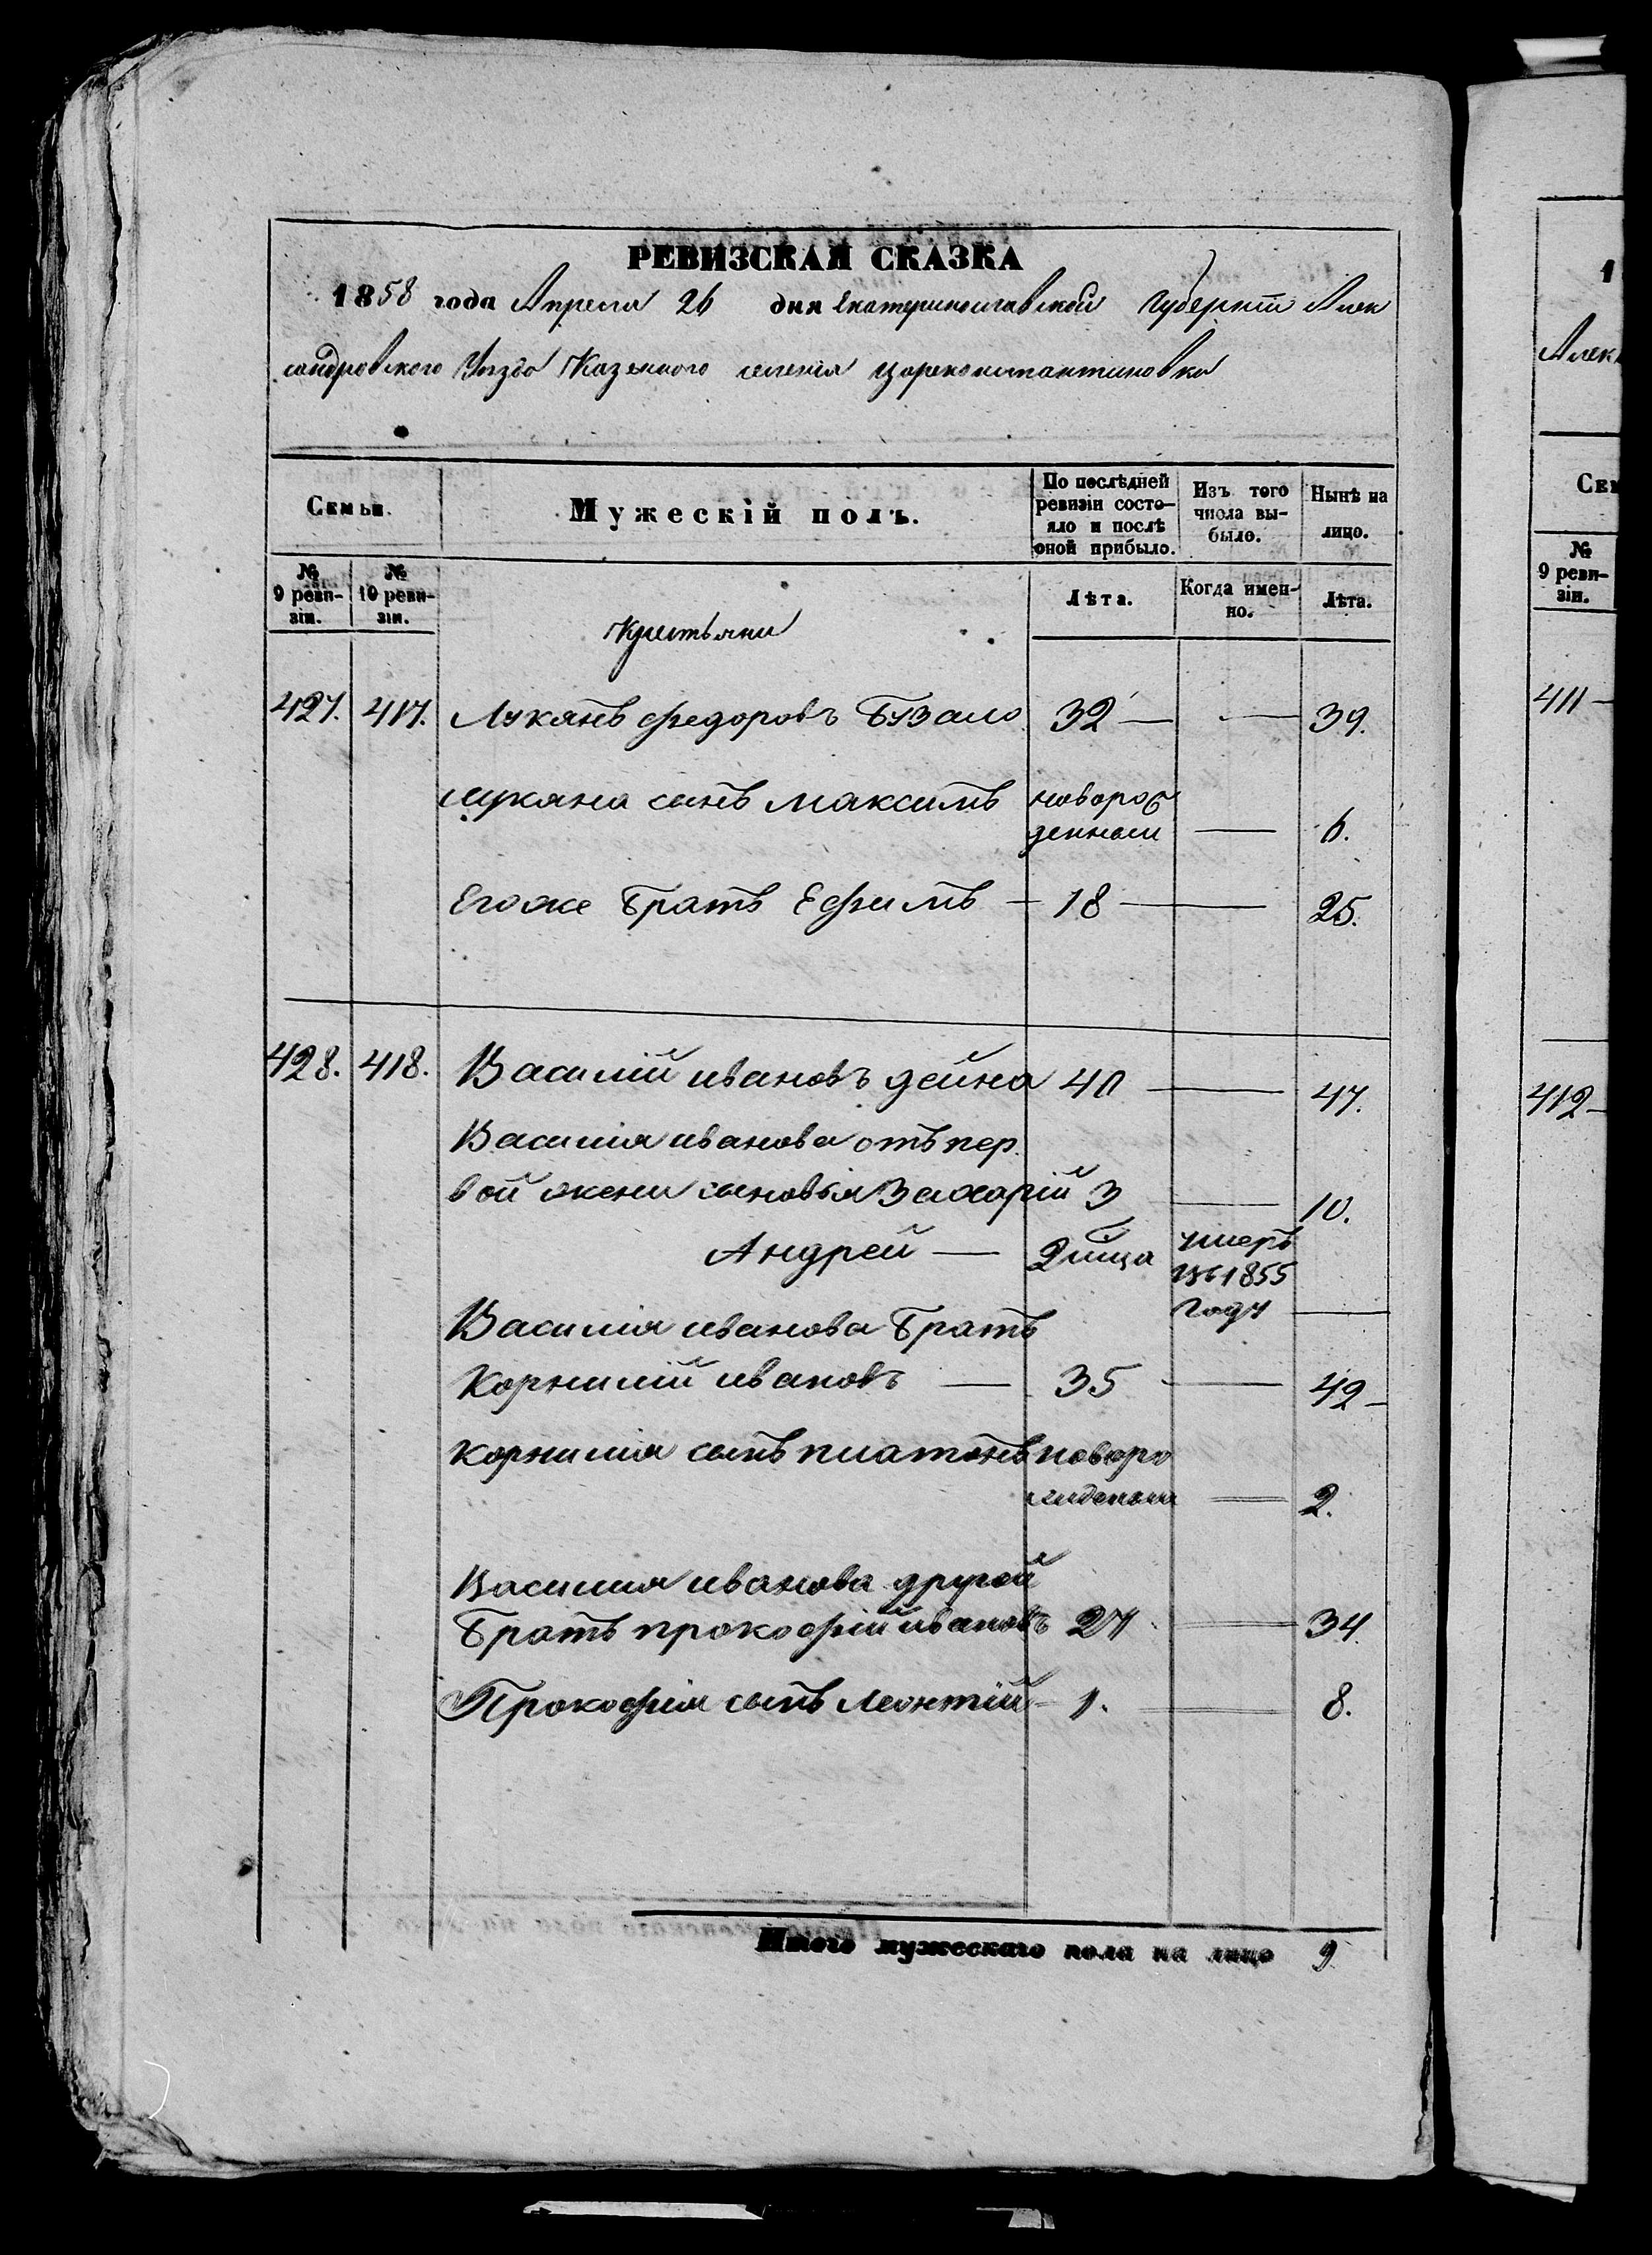 РЕВИЗСКАЯ СКАЗКА
1858 года Апреля 26 дня Екатеринославской Губернiи Алек
сандровского Уезда Казенного селенiя Цареконстантиновка
Семьи.
Мужескiй полъ.
По послѣдней ревизiи состо-
яло и послѣ оной прибыло.
Изъ того числа вы-
было.
Нынѣ на лицо.
№ 9 реви-
зiи.
№ 10 реви-
зiи.
Лѣта.
Когда имен-
но.
Лѣта.
Крестьяни
427. 417. Лукянъ федоровъ Бузало 32 — — 39.
лукяна сынъ максимъ новорож
денный — 6.
Егоже братъ Ефимъ — 18 — — 25.
428. 418. Василiй ивановъ дейна 40 — 47.
Василiя иванова отъ пер
вой жени сыновья Захарiй 3 — 10.
Андрей — 2 мца умеръ
въ 1855
году —
Василiя иванова братъ
Корнилiй ивановъ — 35 — 42 -
корнилiя сынъ платонъ новоро
жденный — 2.
Василия иванова другой
братъ прокофiй ивановъ 27 — 34.
Прокофiя сынъ Леонтiй - 1. — 8.
Итого мужескаго пола на лицо 9
1
Алек
№ 9 реви-
зiи.
411 -
412 -